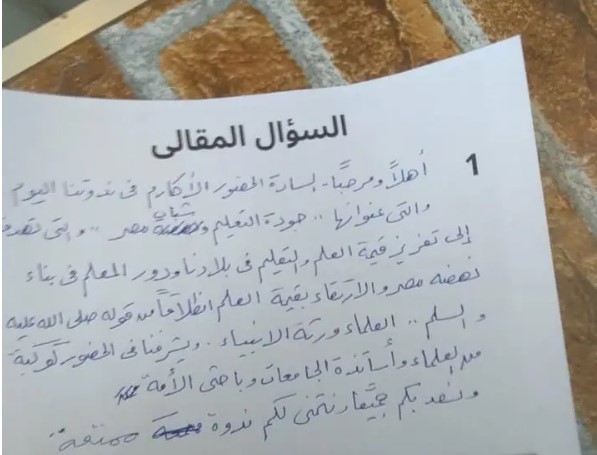 السؤال المقالى
1 أهلاً ومرحبًا - السادة الحضور الأكارم فى ندوتنا اليوم
والتى عنوانها .. جودة التعليم وشباب مصر .. والتى تهدف
إلى تعزيز قيمة العلم والتعليم فى بلادنا ودور المعلم فى بناء
نهضه مصر والارتقاء بقيمة العلم انطلاقاً من قوله صلى الله عليه
والسلم .. العلماء ورثة الانبياء . ويشرفنا فى الحضور كوكبة
من العلماء وأساتذة الجامعات وباحثى الأمة
ونسعد بكم جميعًا ونتمنى لكم ندوة ممتعة.